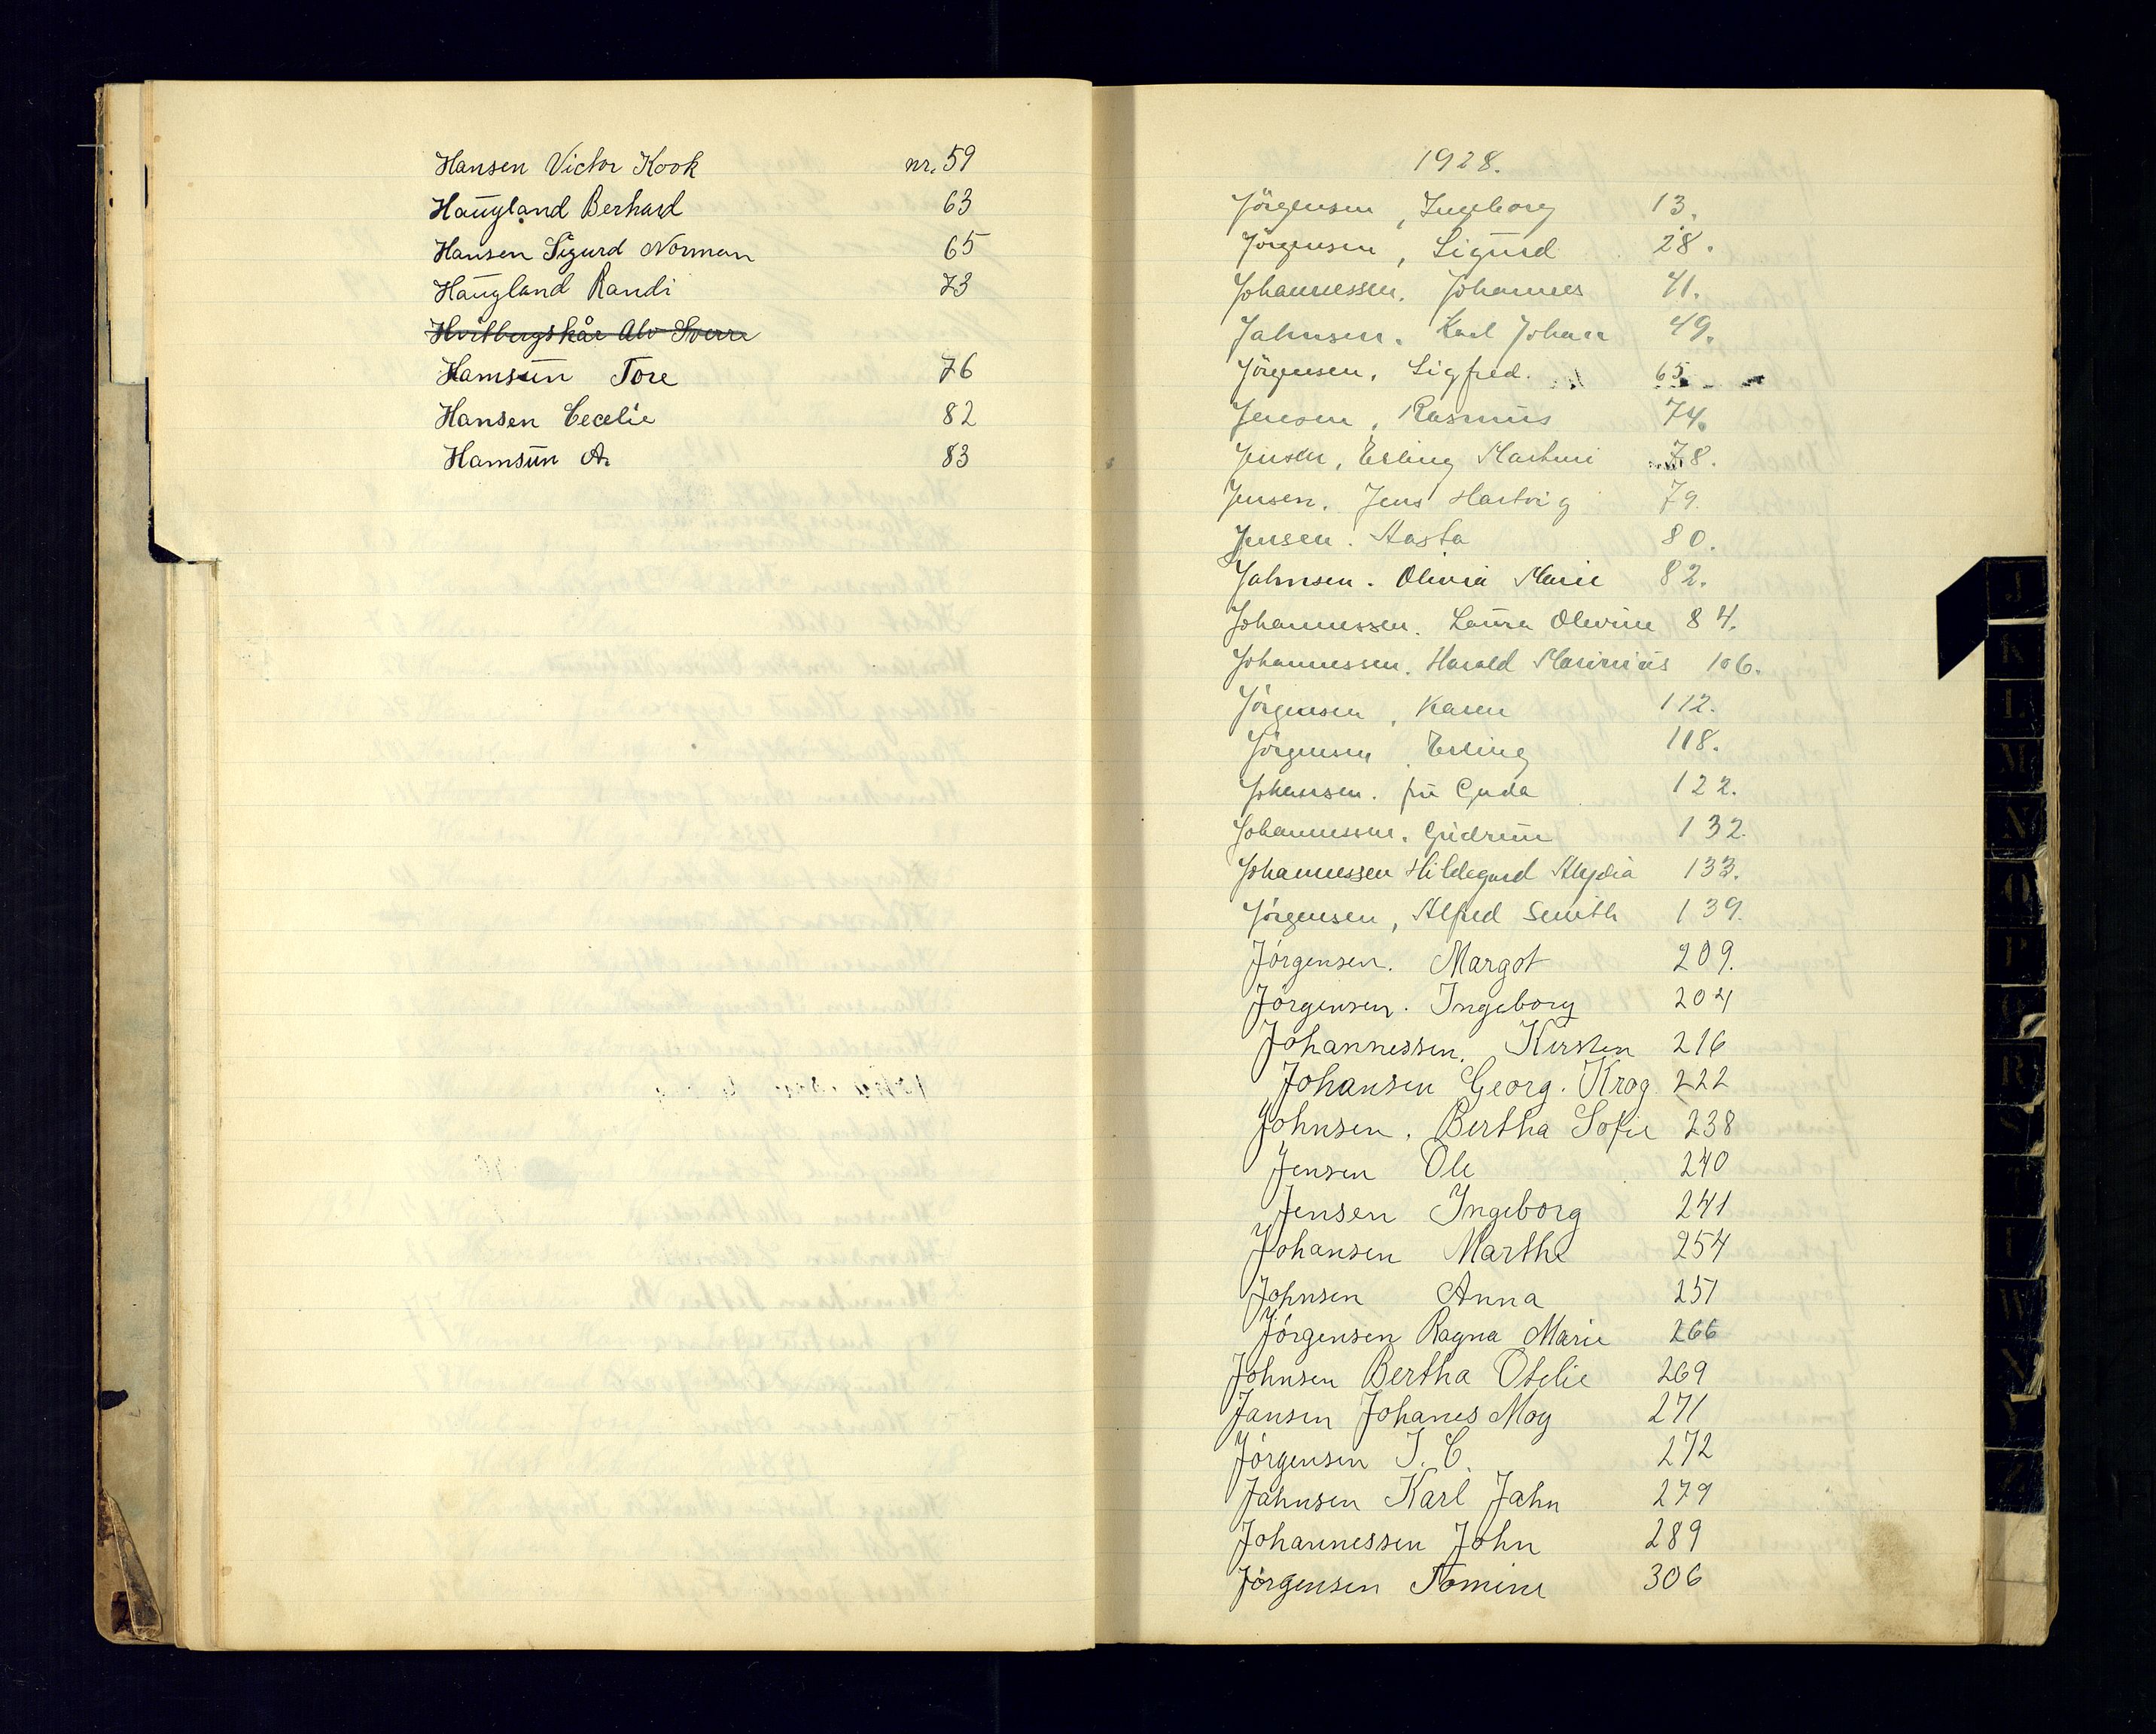 Hansen Victor Kook nr. 59
Haugland Berhard 63
Hansen Sigurd Norman 65
Haugland Randi 73
Hvitbergskår Alv Sverre
Hamsun Tore 76
Hansen Cecelie 82
Hamsun A. 83
1928.
Jörgensen, Ingeborg 13.
Jörgensen, Sigurd 28.
Johannessen. Johannes 41.
Jahnsen. Karl Johan 49.
Jörgensen, Sigfred. 65.
Jensen, Rasmus 74.
Jensen, Erling Martini 78.
Jensen. Jens Hartvig 79.
Jensen. Aasta 80.
Jahnsen. Olivia Marie 82.
Johannessen. Laura Olevine 84.
Johannessen. Harald Marinius 106.
Jörgensen, Karen 112.
Jörgensen, Erling 118.
Johansen. fru Gyda 122.
Johannessen. Gudrun 132.
Johannessen Hildegard Alydia 133.
Jörgensen, Alfred Smith 139.
Jörgensen. Margot 209.
Jörgensen. Ingeborg 204
Johannessen. Kirsten 216
Johansen Georg. Krog 222
Johnsen. Bertha Sofie 238
Jensen Ole 240
Jensen Ingeborg 241
Johansen Marthe 254
Johnsen Anna 251
Jörgensen Ragna Marie 266
Johnsen Bertha Otelie 269
Jansen Johanes Moy 271
Jörgensen J. C. 272
Jahnsen Karl Jahn 279
Johannessen John 289
Jörgensen Tomine 306
J
K
L
M
N
O
P
R